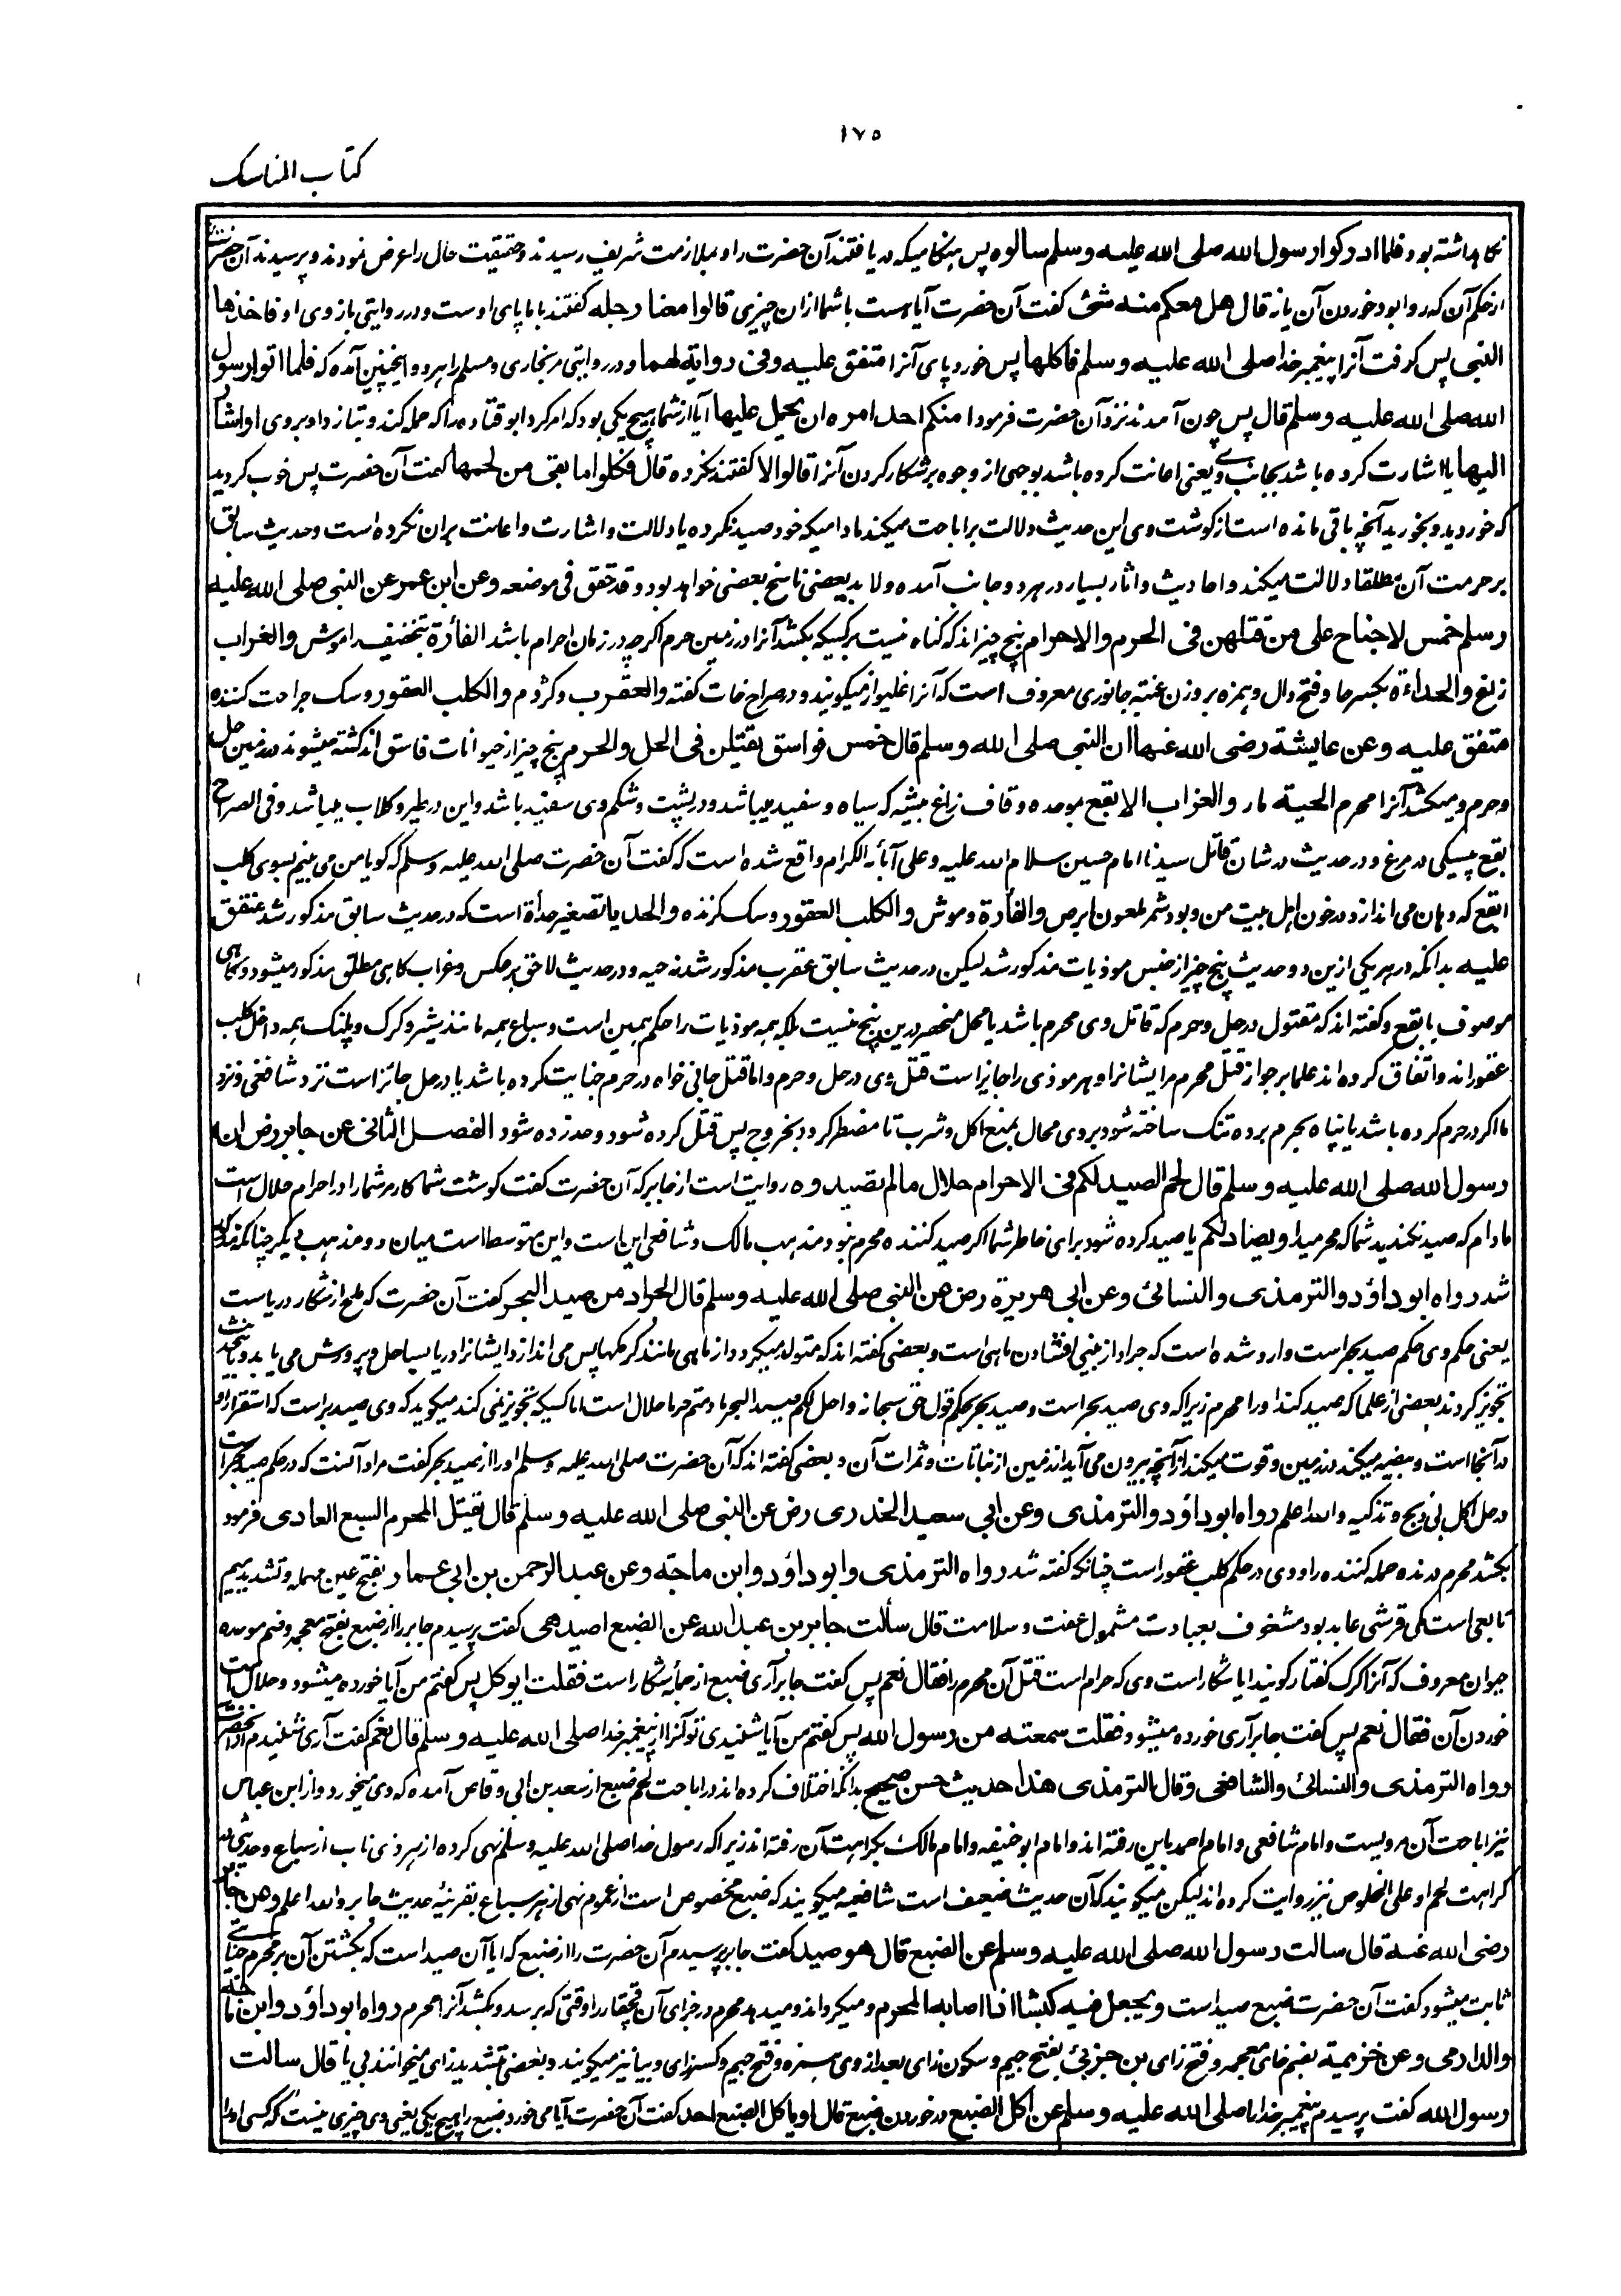 ١٧٥
کتاب المناسک
نکاهداشته بود فلما ادرکوا رسول الله صلی الله علیه وسلم سالوه پس هنکامیکه دریافتند آن حضرت را و بملازمت شریف رسیدند و حقیقت حال را عرض نمودند و پرسیدند آن حضرت
از حکم آن که روا بود خوردن آن یا نه قال هل معکم منه شئ کفت آن حضرت آیا هست با شما ازان چیزی قالوا معنا رجله کفتند با ما پای اوست و در روایتی بازوی او فاخذها
النبی پس کرفت آنرا پیغمبر خدا صلی الله علیه وسلم فاکلها پس خورد پای آنرا متفق علیه وفی روایة لهما و در روایتی مر بخاری و مسلم را هر دو اینچنین آمده که فلما اتوا رسول
الله صلی الله علیه وسلم قال پس چون آمدند نزد آن حضرت فرمود امنکم احد امره ان یحمل علیها آیا از شما هیچ یکی بود که امر کرد ابو قتاده را که حمله کند و بتازد او بروی او اشار
الیها یا اشارت کرده باشد بجانب وی یعنی اعانت کرده باشد بوجهی از وجوه بر شکار کردن آنرا قالوا لا کفتند نکرده قال فکلوا ما بقی من لحمها کفت آن حضرت پس خوب کردید
که خوردید و بخورید آنچه باقی مانده است از کوشت وی این حدیث دلالت بر اباحت میکند مادامیکه خود صید نکرده یا دلالت و اشارت و اعانت بران نکرده است و حدیث سابق
بر حرمت آن مطلقا دلالت میکند و احادیث و آثار بسیار در هر دو جانب آمده ولا بد بعضی ناسخ بعضی خواهد بود و قد تحقق فی موضعه وعن ابن عمر عن النبی صلی الله علیه
وسلم خمس لا جناح علی من قتلهن فی الحرم والاحرام پنج چیز اند که کناه نیست بر کسیکه بکشد آنرا در زمین حرم اکرچه در زمان احرام باشد الفأرة بتخفیف را موش والغراب
زاغ والحداءة بکسر حا و فتح دال و همزه بر وزن عنبه جانوری معروف است که آنرا غلیواز میکویند و در صراح خات کفته والعقرب و کژدم والکلب العقور و سک جراحت کننده
متفق علیه وعن عایشة رضی الله عنها ان النبی صلی الله وسلم قال خمس فواسق یقتلن فی الحل والحرم پنج چیز از حیوانات فاسق اند کشته میشوند در زمین حل
و حرم و میکشد آنرا محرم الحیة مار والغراب الابقع بموحده و قاف زاغ میشه که سیاه و سفید میباشد و در پشت و شکم وی سفید باشد و این در طیر و کلاب میباشد و فی الصراح
بقع پیسکی در مرغ و در حدیث در شان قاتل سیدنا امام حسین سلام الله علیه وعلی آبائه الکرام واقع شده است که کفت آن حضرت صلی الله علیه وسلم که کویا من می بینم بسوی کلب
ابقع که دهان می اندازد در خون اهل بیت من و بود شمر ملعون ابرص والفأرة و موش والکلب العقور و سک کزنده والحدیا تصغیر حدأة است که در حدیث سابق مذکور شد متفق
علیه بدانکه در هر یکی ازین دو حدیث پنج چیز از جنس موذیات مذکور شد لیکن در حدیث سابق عقرب مذکور شد نه حیه و در حدیث لاحق بر عکس و غراب کاهی مطلق مذکور میشود و کاهی
موصوف با بقع و کفته اند که مقتول در حل و حرم که قاتل وی محرم باشد یا محل منحصر درین پنج نیست بلکه همه موذیات را حکم همین است و سباع همه مانند شیر و کرک و پلنک همه داخل کلب
عقور اند و اتفاق کرده اند علما بر جواز قتل محرم مر ایشانرا و هر موذی را جایز است قتل وی در حل و حرم و اما قتل جانی خواه در حرم جنایت کرده باشد یا در حل جائز است نزد شافعی و نزد
ما اکر در حرم کرده باشد یا پناه بحرم برده تنک ساخته شود بروی مجال بمنع اکل و شرب تا مضطر کردد بخروج پس قتل کرده شود و حد زده شود الفصل الثانی عن جابر رض ان
رسول الله صلی الله علیه وسلم قال لحم الصید لکم فی الاحرام حلال ما لم تصیدوه روایت است از جابر که آن حضرت کفت کوشت شکار مر شما را در احرام حلال است
مادام که صید نکنید شما که محرمید او یصاد لکم یا صید کرده شود برای خاطر شما اکر صید کننده محرم نبود مذهب مالک و شافعی این است و این متوسط است میان دو مذهب دیکر چنانکه مذکور
شد رواه ابوداؤد والترمذی والنسائی وعن ابی هریرة رض عن النبی صلی الله علیه وسلم قال الجراد من صید البحر کفت آن حضرت که ملخ از شکار دریاست
یعنی حکم وی حکم صید بحر است وارد شده است که جراد از بینی افشاندن ماهی است و بعضی کفته اند که متولد میکردد از ماهی مانند کرمکها پس می اندازد ایشانرا دریا بساحل و پرورش می یابد و باین
تجویز کردند بعضی از علما که صید کند او را محرم زیرا که وی صید بحر است و صید بحر بحکم قول حق سبحانه و احل لکم صید البحر ما دمتم حرما حلال است اما کسیکه تجویز نمی کند میکوید که وی صید بر است که استقرار او
در آنجا است و بیضه میکند در زمین و قوت میکند از آنچه بیرون می آید از زمین از نباتات و ثمرات آن و بعضی کفته اند که آن حضرت صلی الله علیه وسلم او را از صید بحر کفت مراد آنست که در حکم صید بحر است
در حل اکل بی ذبح و تذکیه والله اعلم رواه ابوداؤد والترمذی وعن ابی سعید الخدری رض عن النبی صلی الله علیه وسلم قال یقتل المحرم السبع العادی فرمود
بکشد محرم درنده حمله کننده را و وی در حکم کلب عقور است چنانکه کفته شد رواه الترمذی وابوداؤد وابن ماجة وعن عبدالرحمن بن ابی عمار بفتح عین مهمله و تشدید میم
تابعی است مکی قرشی عابد بود مشغوف بعبادت مشمول عفت و سلامت قال سألت جابر بن عبدالله عن الضبع اصید هی کفت پرسیدم جابر را از ضبع بفتح معجمه و ضم موحده
حیوان معروف که آنرا کرک کفتار کویند آیا شکار است وی که حرام است قتل آن محرم را فقال نعم پس کفت جابر آری ضبع از جمله شکار است فقلت ایوکل پس کفتم من آیا خورده میشود و حلال است
خوردن آن فقال نعم پس کفت جابر آری خورده میشود فقلت سمعته من رسول الله پس کفتم من آیا شنیدی تو آنرا از پیغمبر خدا صلی الله علیه وسلم قال نعم کفت آری شنیدم از آنحضرت
رواه الترمذی والنسائی والشافعی وقال الترمذی هذا حدیث حسن صحیح بدانکه اختلاف کرده اند در اباحت لحم ضبع از سعد بن ابی وقاص آمده که وی میخورد و از ابن عباس
نیز اباحت آن مرویست و امام شافعی و امام احمد باین رفته اند و امام ابو حنیفه و امام مالک بکراهت آن رفته اند زیرا که رسول خدا صلی الله علیه وسلم نهی کرده از هر ذی ناب از سباع و حدیثی در
کراهت لحم او علی الخلوص نیز روایت کرده اند لیکن میکویند که آن حدیث ضعیف است شافعیه میکویند که ضبع مخصوص است از عموم نهی از هر سباع بقرینه حدیث جابر والله اعلم وعن جابر
رضی الله عنه قال سالت رسول الله صلی الله علیه وسلم عن الضبع قال هو صید کفت جابر پرسیدم آن حضرت را از ضبع که آیا آن صید است که بکشتن آن بر محرم جنایتی
ثابت میشود کفت آن حضرت ضبع صید است ویجعل فیه کبشا اذا اصابه المحرم و میکرداند و میدهد محرم در جزای آن قچقار را وقتی که برسد و بکشد آنرا محرم رواه ابوداؤد وابن ماجه
والدارمی وعن خزیمة بضم خای معجمه و فتح زای بن جزئ بفتح جیم و سکون زای بعد از وی همزه و فتح جیم و کسر زای و بیا نیز میکویند و بعضی بتشدید زای میخوانند بی یا قال سالت
رسول الله کفت پرسیدم پیغمبر خدا را صلی الله علیه وسلم عن اکل الضبع در خوردن ضبع قال او یاکل الضبع احد کفت آن حضرت آیا می خورد ضبع را هیچ یکی یعنی وی چیزی نیست که کسی او را